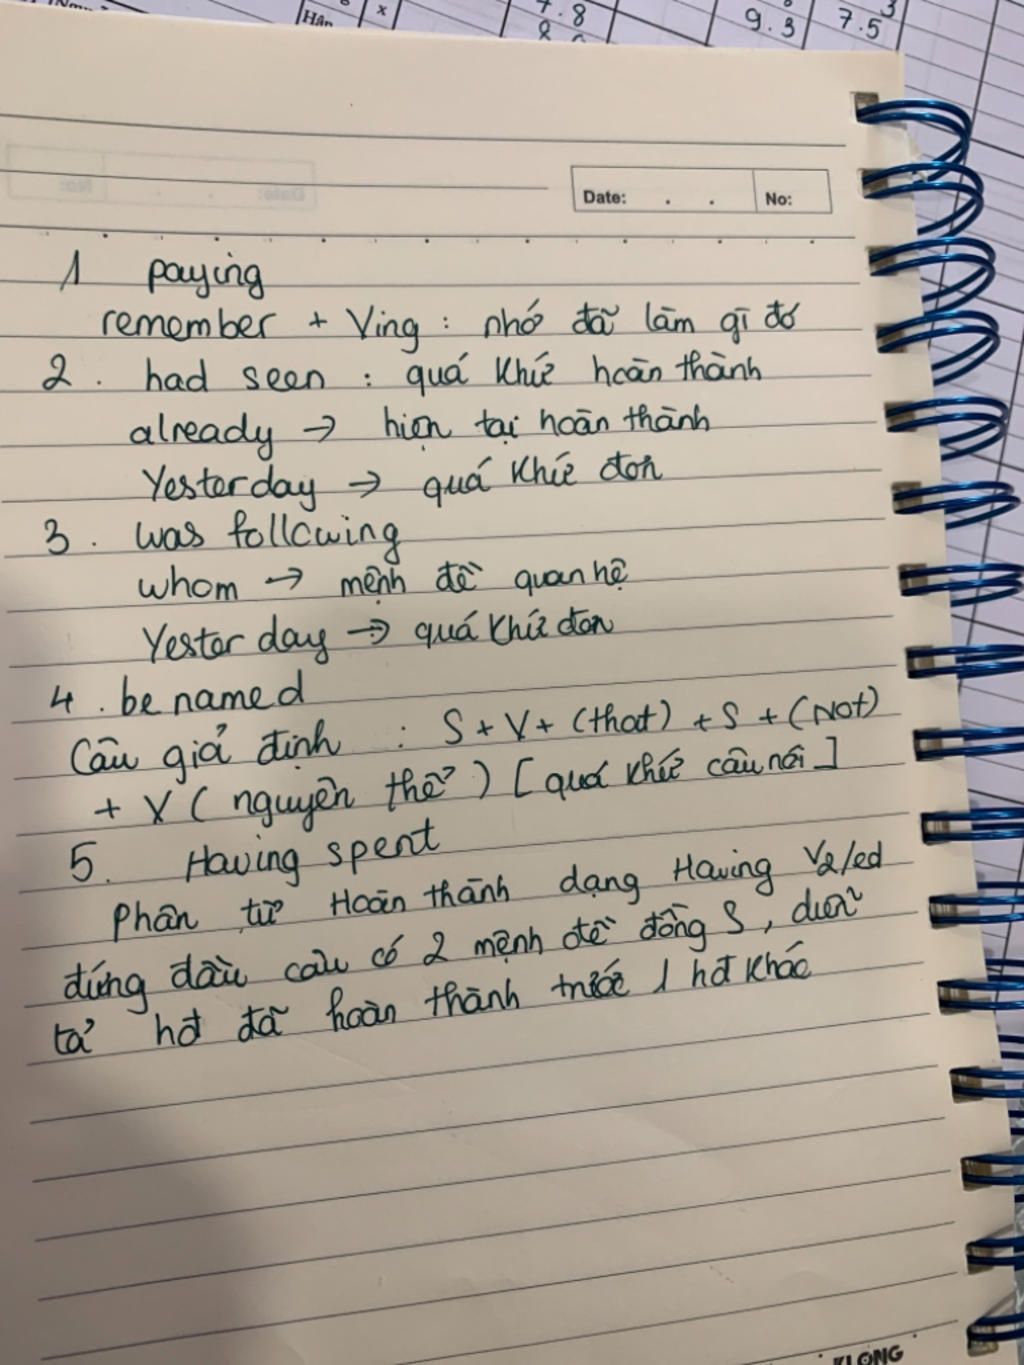 Hân x 7.8 9.3 7.5 3
Date: . . No:
1 paying
remember + Ving : nhớ đã làm gì đó
2 . had seen : quá khứ hoàn thành
already → hiện tại hoàn thành
Yesterday → quá khứ đơn
3 . was following
whom → mệnh đề quan hệ
Yesterday → quá khứ đơn
4 . be named
Câu giả định : S + V + (that) + S + (Not)
+ V ( nguyên thể ) [ quá khứ câu nói ]
5 . Having spent
Phân từ Hoàn thành dạng Having V2/ed
đứng đầu câu có 2 mệnh đề đồng S, diễn
tả hđ đã hoàn thành trước 1 hđ khác
KLONG